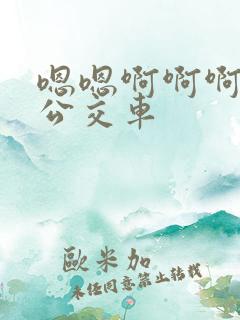 嗯嗯啊啊啊
公交車
歐米加
未经同意禁止转载